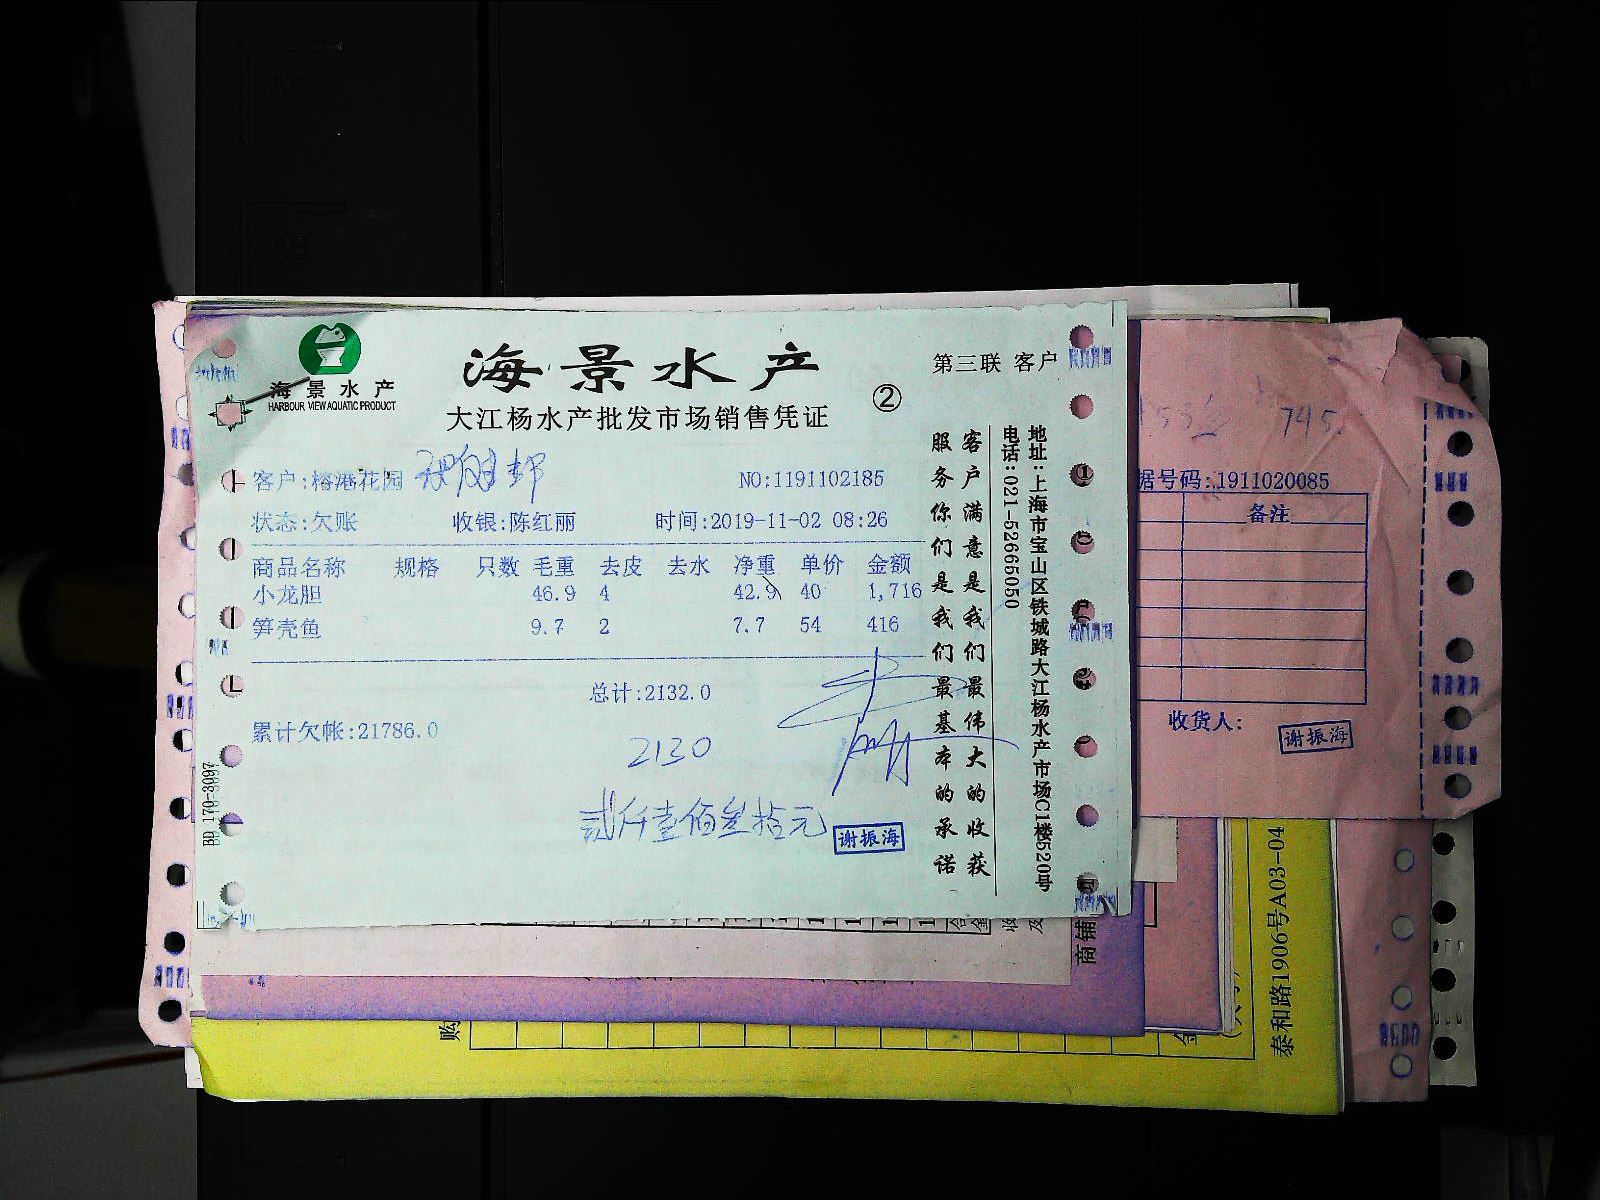 海景水产
HARBOUR VIEW AQUATIC PRODUCT
海景水产
大江杨水产批发市场销售凭证
②
第三联 客户
客户:榕港花园
NO:1191102185
状态:欠账 收银:陈红丽 时间:2019-11-02 08:26
商品名称 规格 只数 毛重 去皮 去水 净重 单价 金额
小龙胆 46.9 4 42.9 40 1,716
笋壳鱼 9.7 2 7.7 54 416
总计:2132.0
累计欠帐:21786.0
2130
贰仟壹佰叁拾元
谢振海
BD 170-3097
客户满意是我们最伟大的收获
服务你们是我们最基本的承诺
地址:上海市宝山区铁城路大江杨水产市场C1楼520号
电话:021-52665050
745
据号码:1911020085
备注
收货人:
谢振海
商铺
泰和路1906号A03-04
购
A4
A5